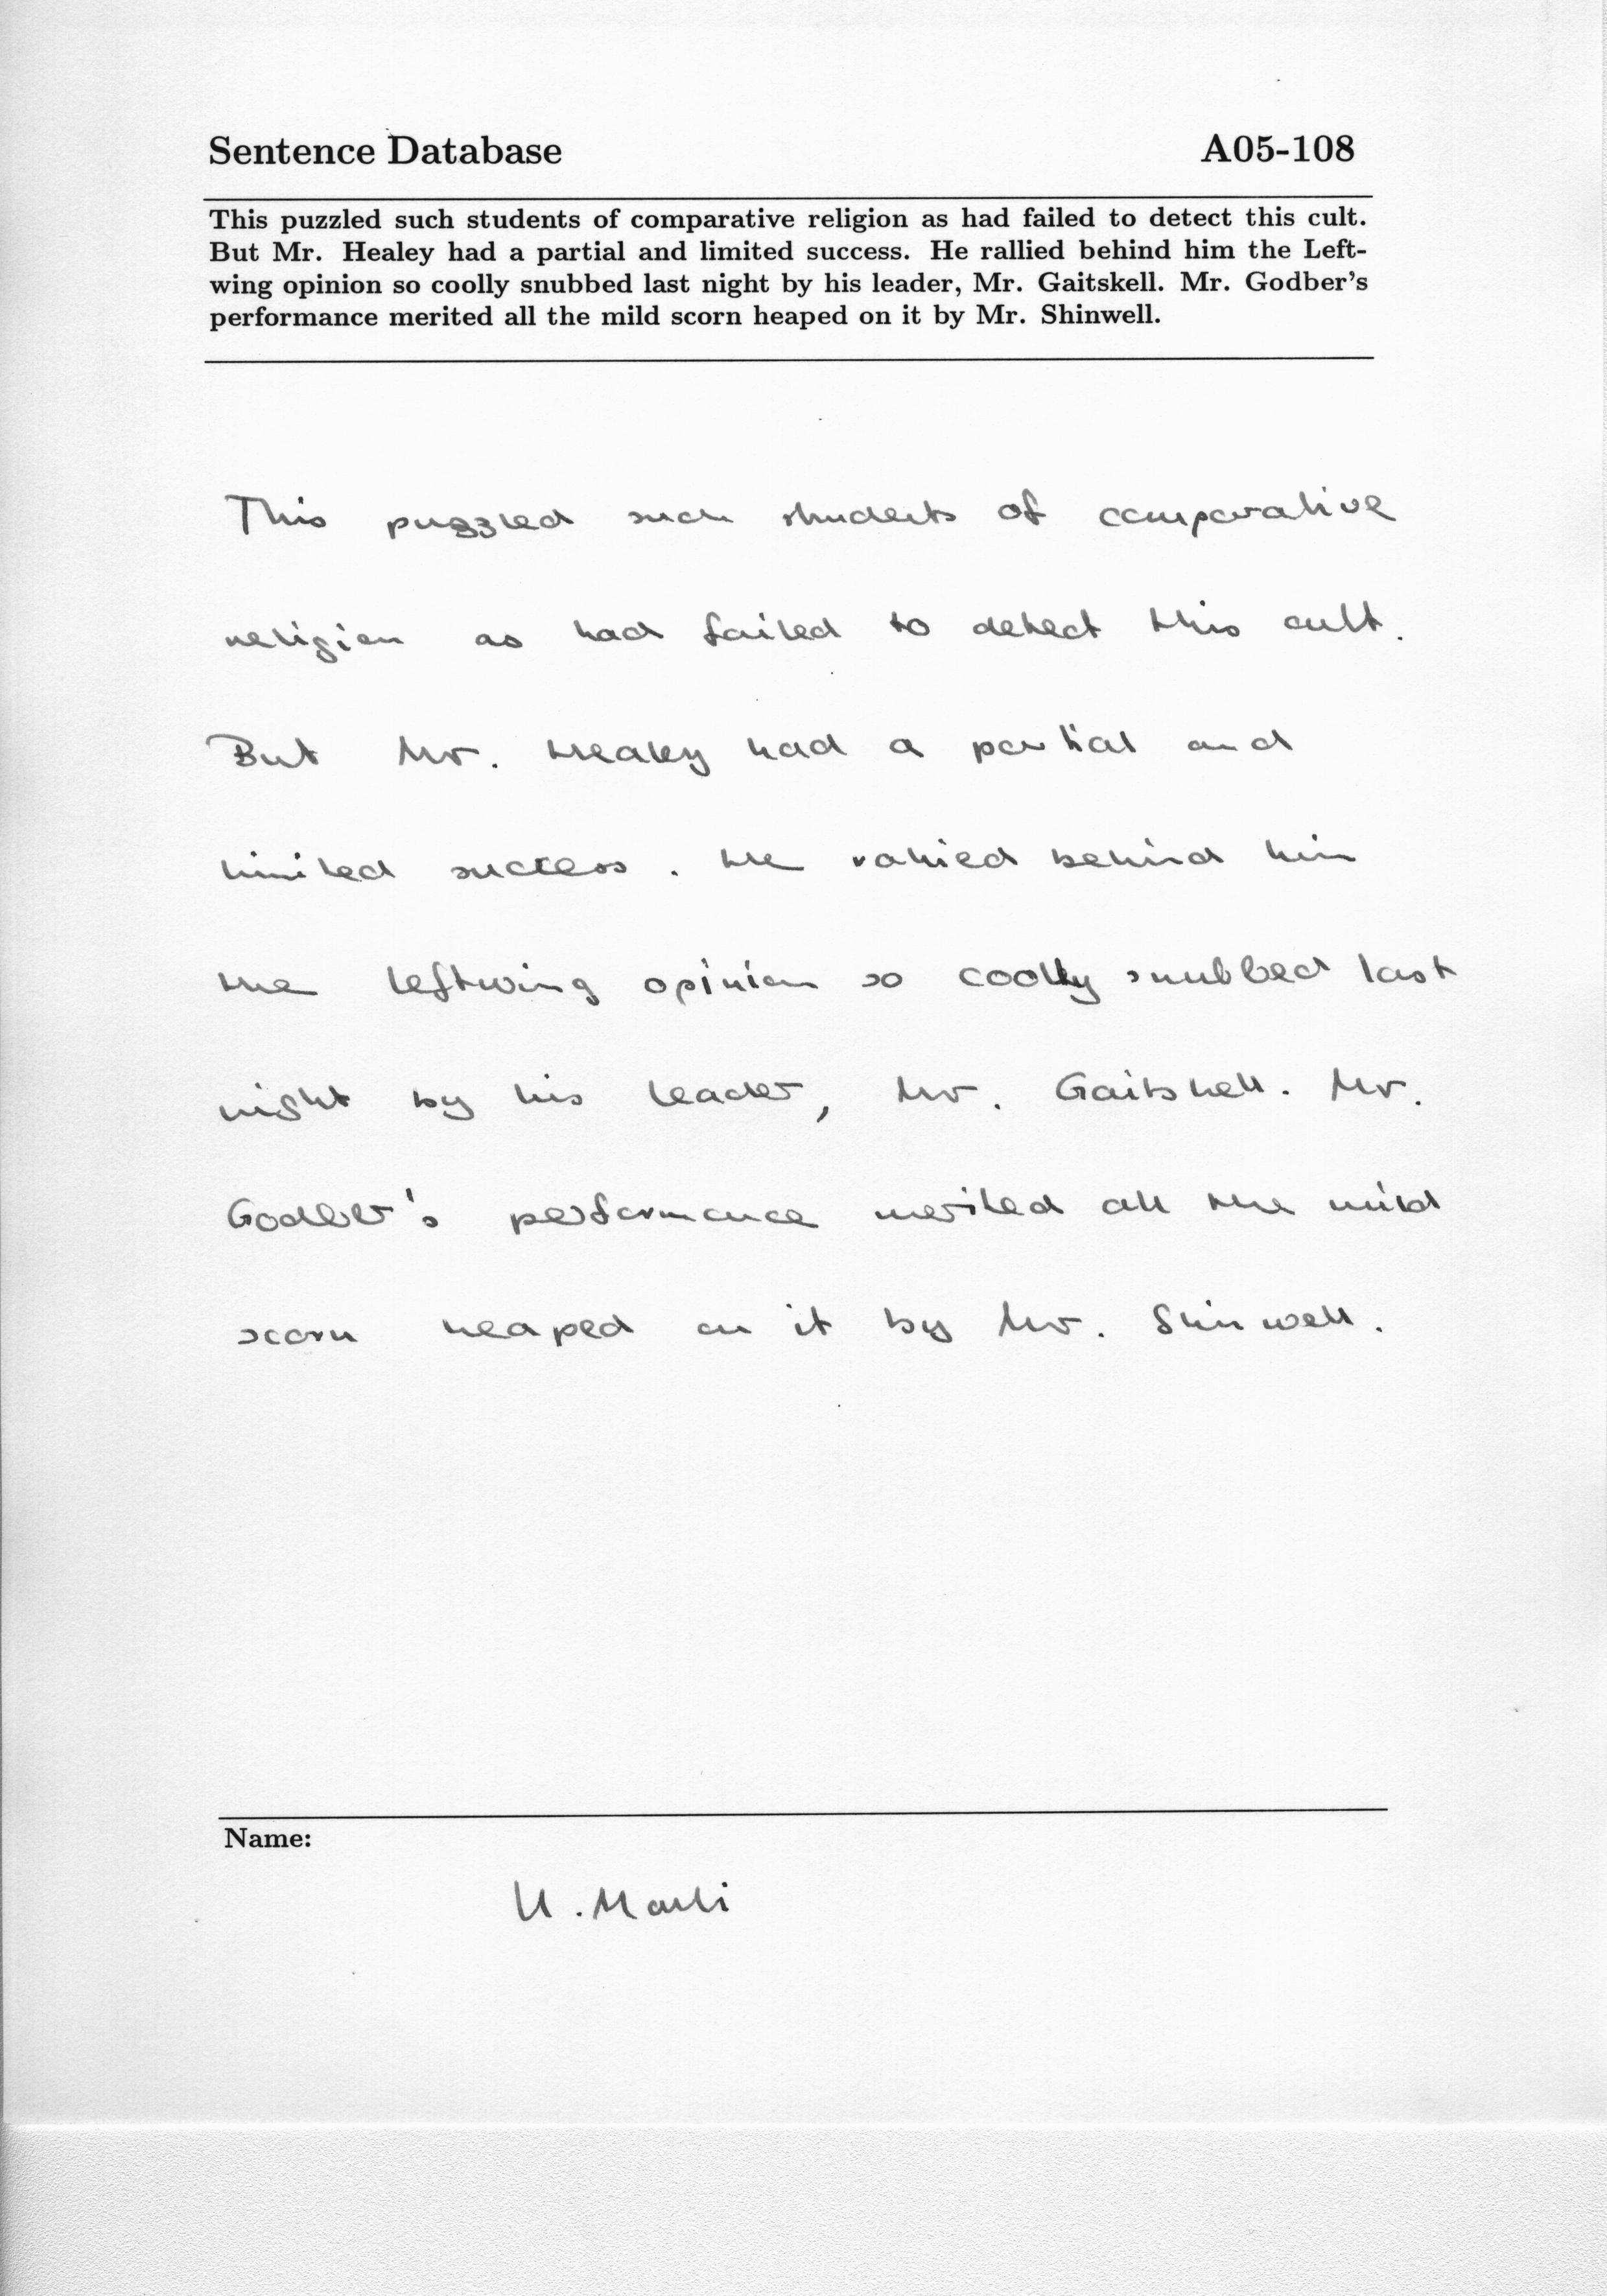 Sentence Database A05-108
This puzzled such students of comparative religion as had failed to detect this cult.
But Mr. Healey had a partial and limited success. He rallied behind him the Left-
wing opinion so coolly snubbed last night by his leader, Mr. Gaitskell. Mr. Godber's
performance merited all the mild scorn heaped on it by Mr. Shinwell.
This puzzled such students of comparative
religion as had failed to detect this cult.
But Mr. Healey had a partial and
limited success. He rallied behind him
the leftwing opinion so coolly snubbed last
night by his leader, Mr. Gaitskell. Mr.
Godber's performance merited all the mild
scorn heaped on it by Mr. Shinwell.
Name:
U.